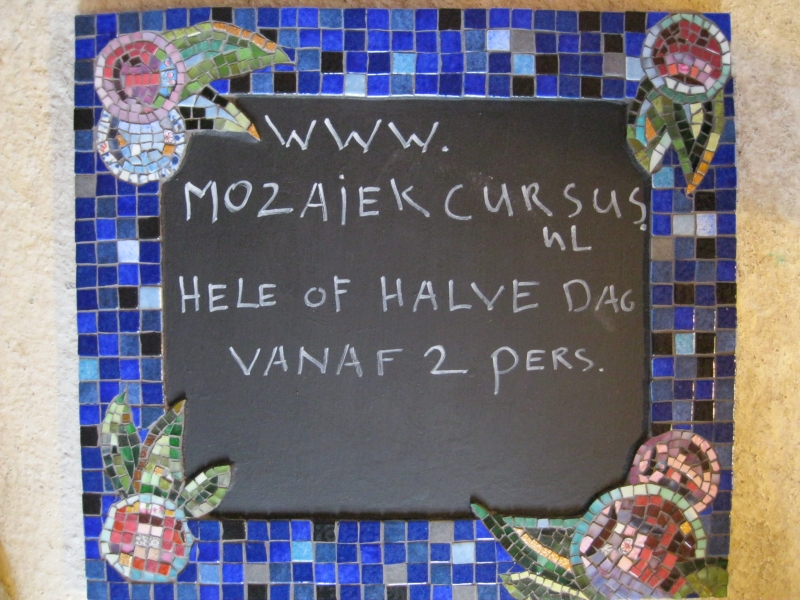 WWW.
MOZAIEKCURSUS.
NL
HELE OF HALVE DAG
VANAF 2 PERS.